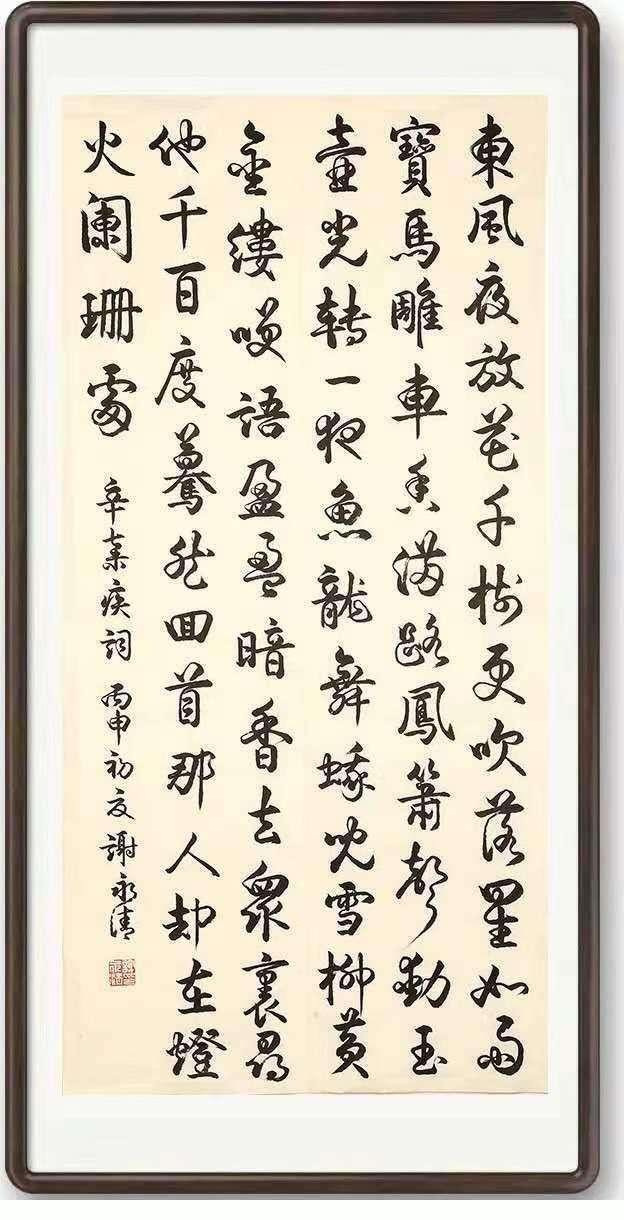 東風夜放花千樹更吹落星如雨
寶馬雕車香滿路鳳簫聲動玉
壺光轉一夜魚龍舞蛾兒雪柳黃
金縷笑語盈盈暗香去眾裏尋
他千百度驀然回首那人却在燈
火闌珊處
辛棄疾詞 丙申初夏 謝永清